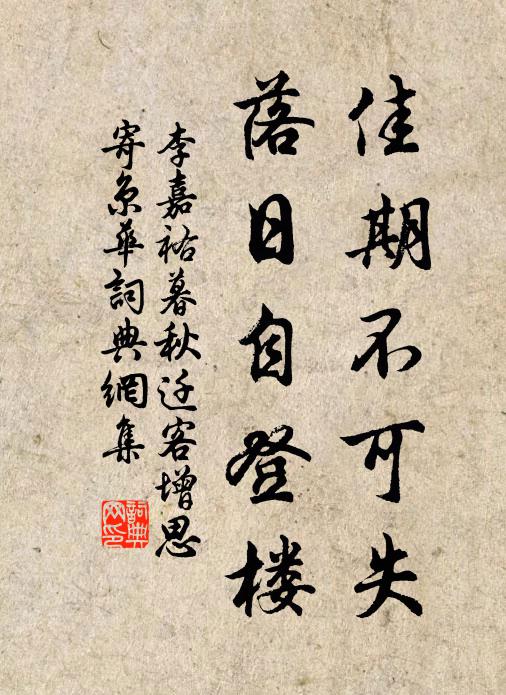 佳期不可失
落日自登楼
李嘉祐暮秋迁客增思
寄京华詞典網集
詞典网印